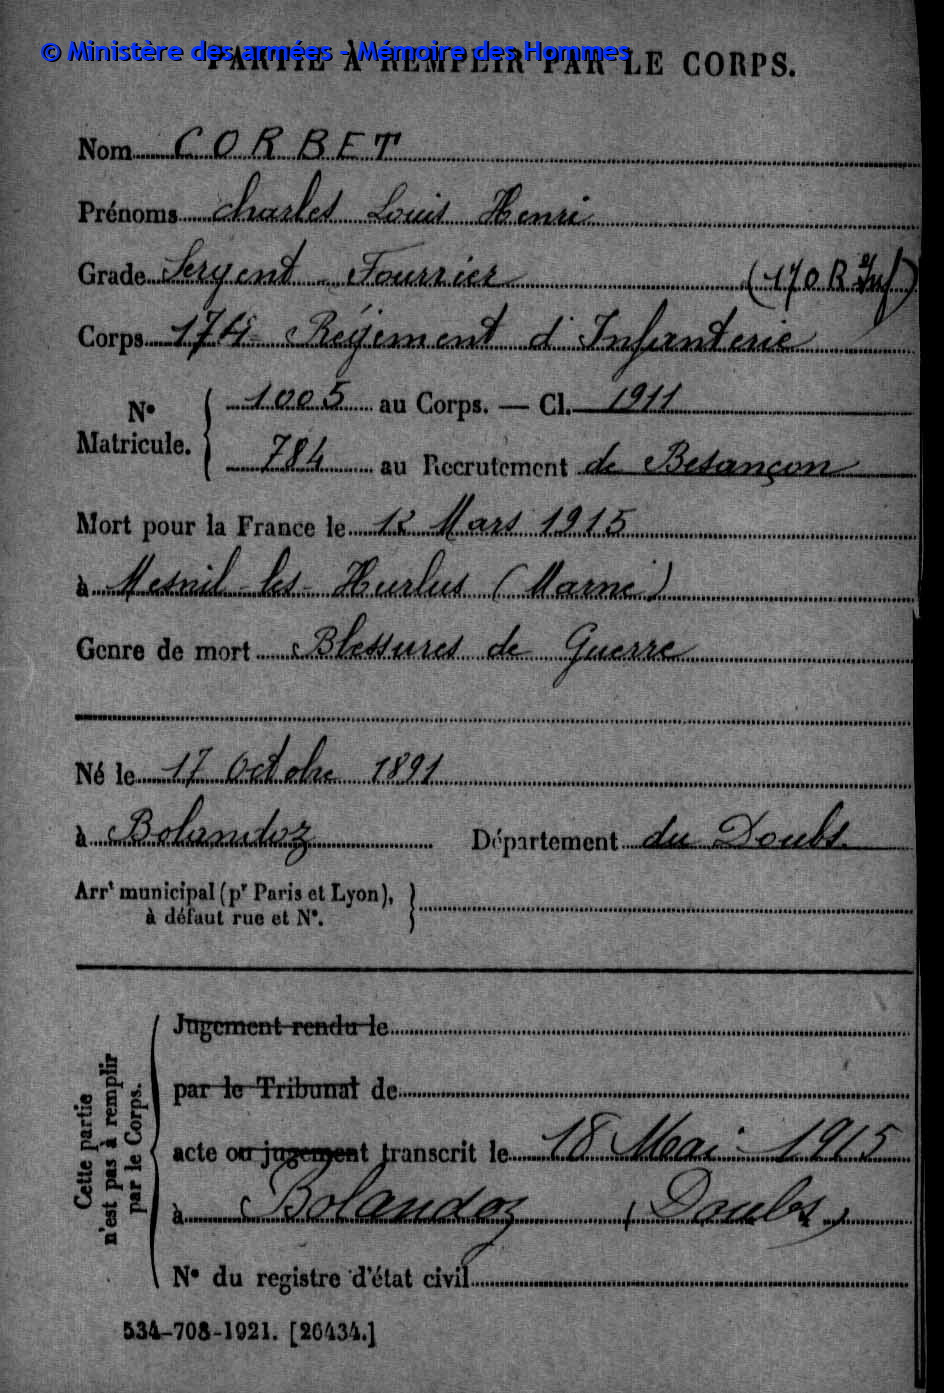 © Ministère des armées - Mémoire des Hommes
PARTIE À REMPLIR PAR LE CORPS.
Nom CORBET
Prénoms Charles Louis Henri
Grade Sergent Fourrier (170 R Inf)
Corps 174 Régiment d'Infanterie
N° Matricule. 1005 au Corps. — Cl. 1911
784 au Recrutement de Besançon
Mort pour la France le 12 Mars 1915
à Mesnil-les-Hurlus (Marne)
Genre de mort Blessures de Guerre
Né le 17 Octobre 1891
à Bolandoz Département du Doubs.
Arrt municipal (pr Paris et Lyon),
à défaut rue et N°.
Cette partie
n'est pas à remplir
par le Corps.
Jugement rendu le
par le Tribunal de
acte ou jugement transcrit le 18 Mai 1915
à Bolandoz (Doubs)
N° du registre d'état civil
534-708-1921. [26434.]